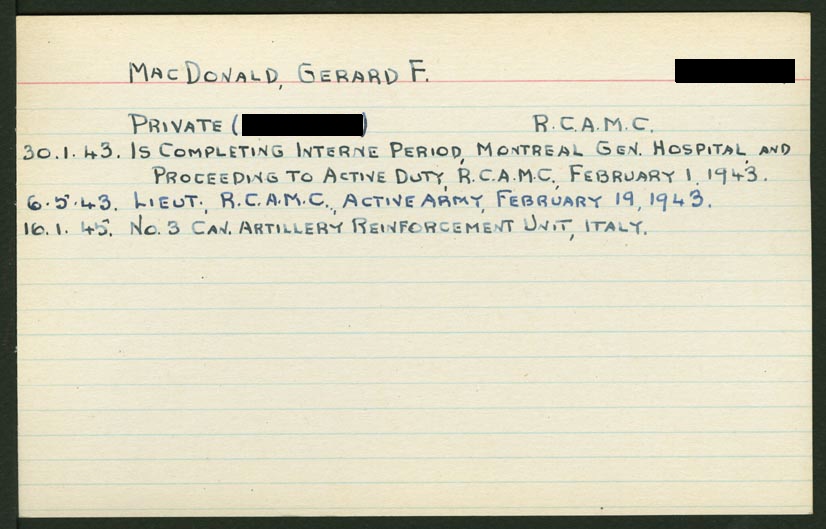 MACDONALD, GERARD F.
PRIVATE ( ) R.C.A.M.C.
30.1.43. IS COMPLETING INTERNE PERIOD, MONTREAL GEN. HOSPITAL, AND
PROCEEDING TO ACTIVE DUTY, R.C.A.M.C., FEBRUARY 1, 1943.
6.5.43. LIEUT., R.C.A.M.C., ACTIVE ARMY, FEBRUARY 19, 1943.
16.1.45. NO. 3 CAN. ARTILLERY REINFORCEMENT UNIT, ITALY.